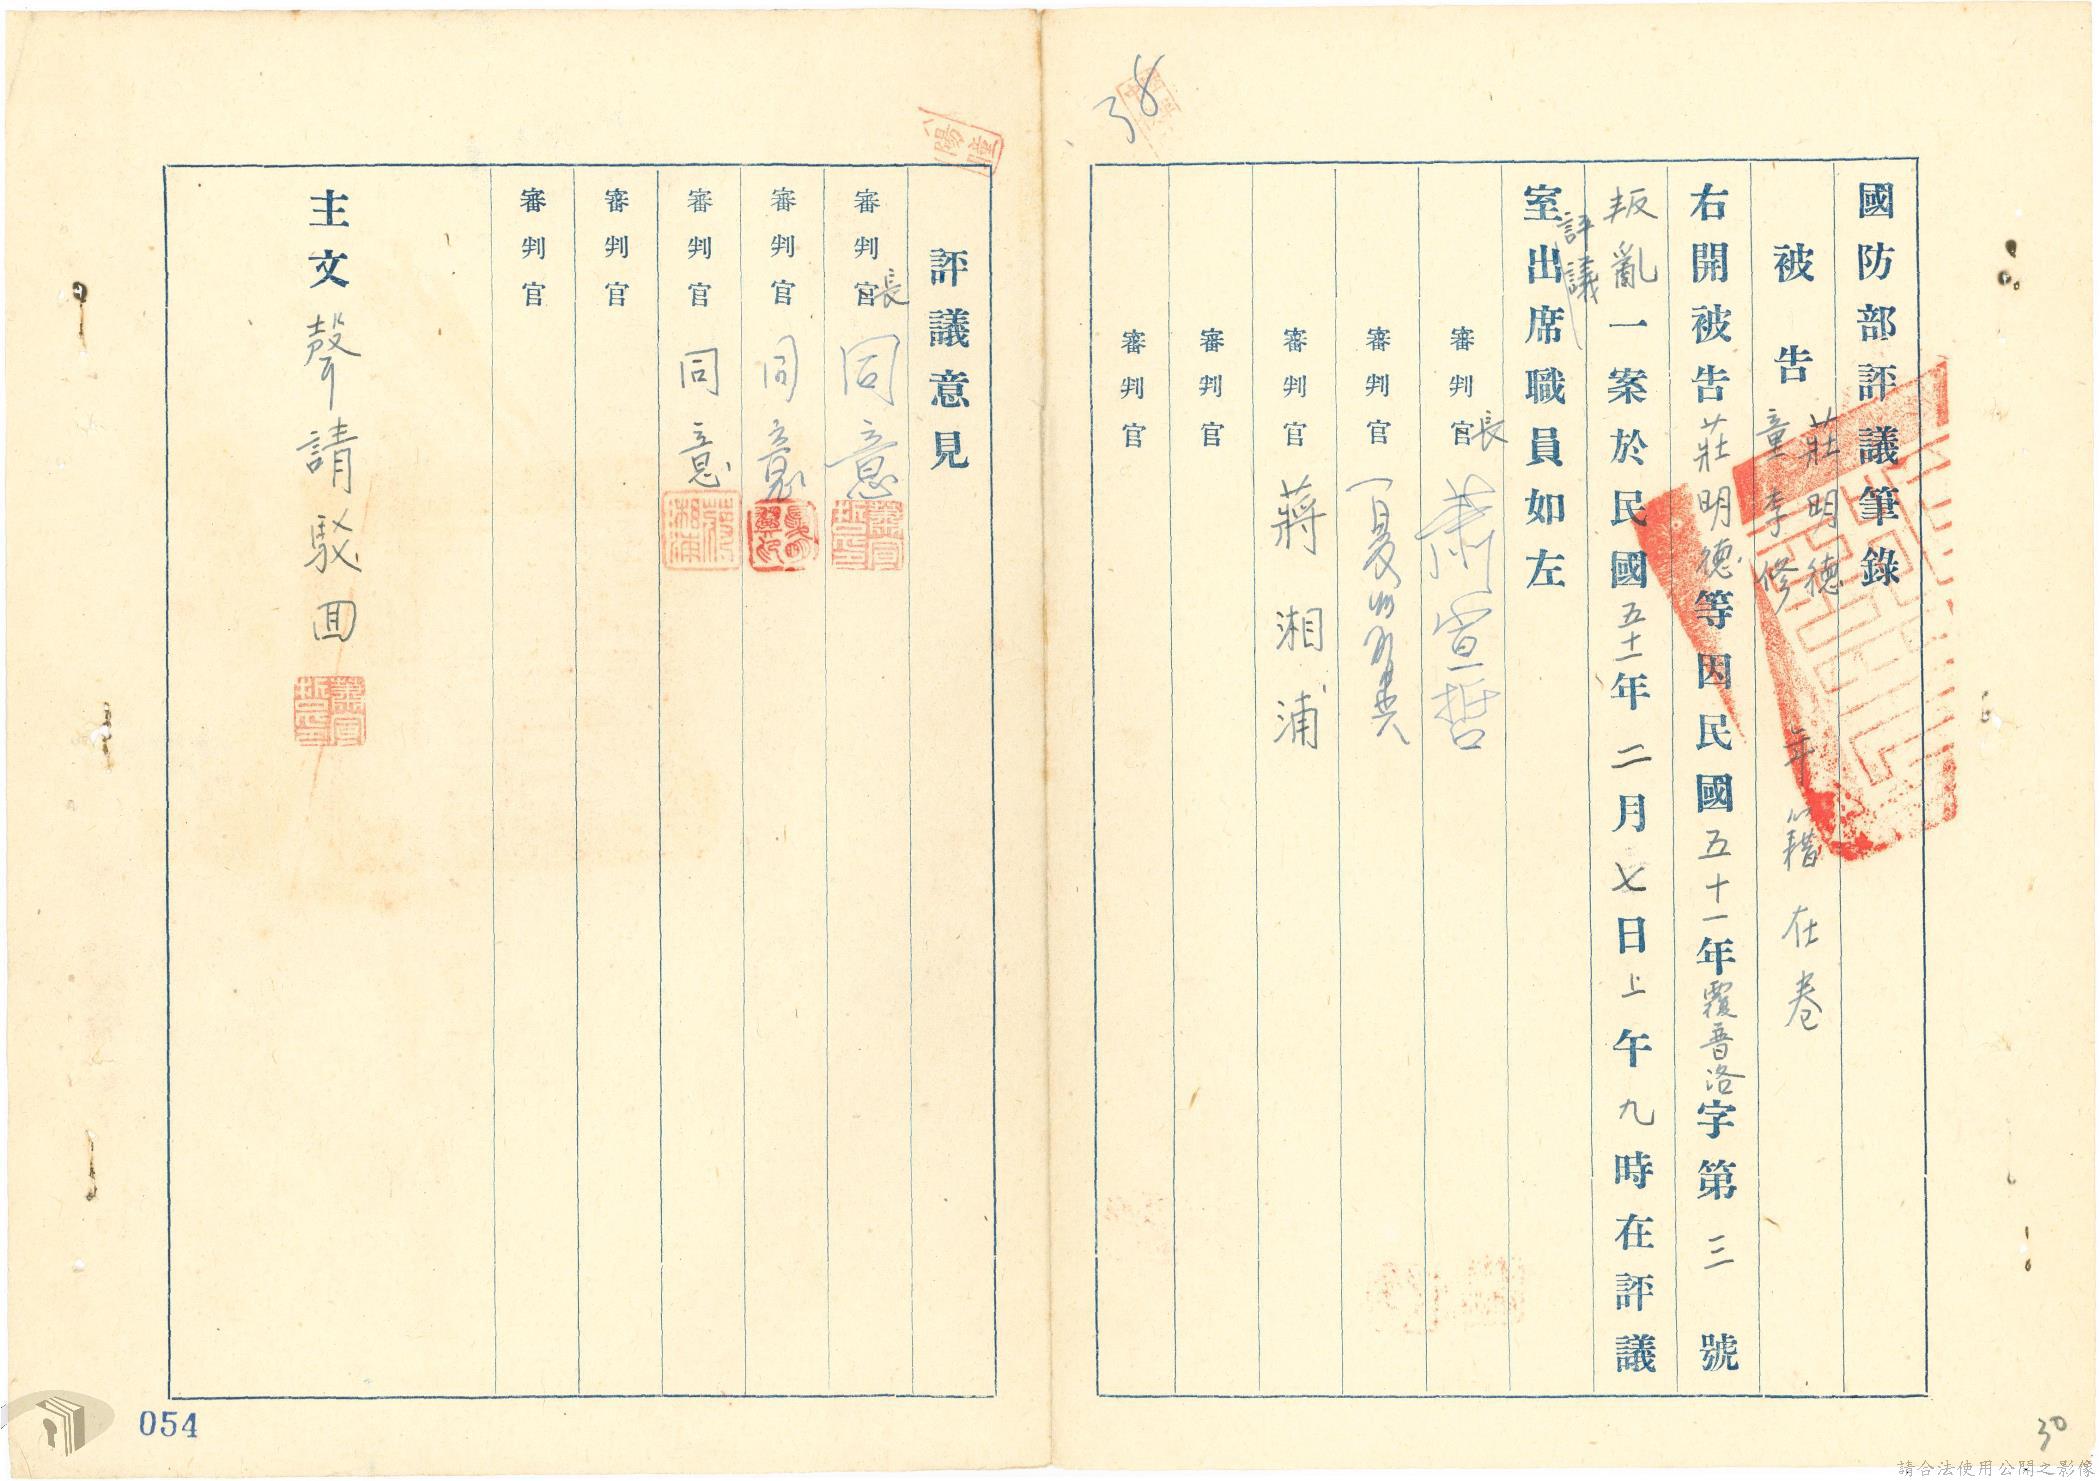 38
國防部評議筆錄
被告 莊明德 童李修 年籍在卷
右開被告莊明德等因民國五十一年覆普洛字第三號
叛亂一案於民國五十一年二月七日上午九時在評議
評議
室出席職員如左
審判官長 蕭宣哲
審判官 夏
審判官 蔣湘浦
審判官
審判官
評議意見
審判官長 同意
審判官 同意
審判官 同意
審判官
審判官
主文 聲請駁回
054
30
請合法使用公開之影像